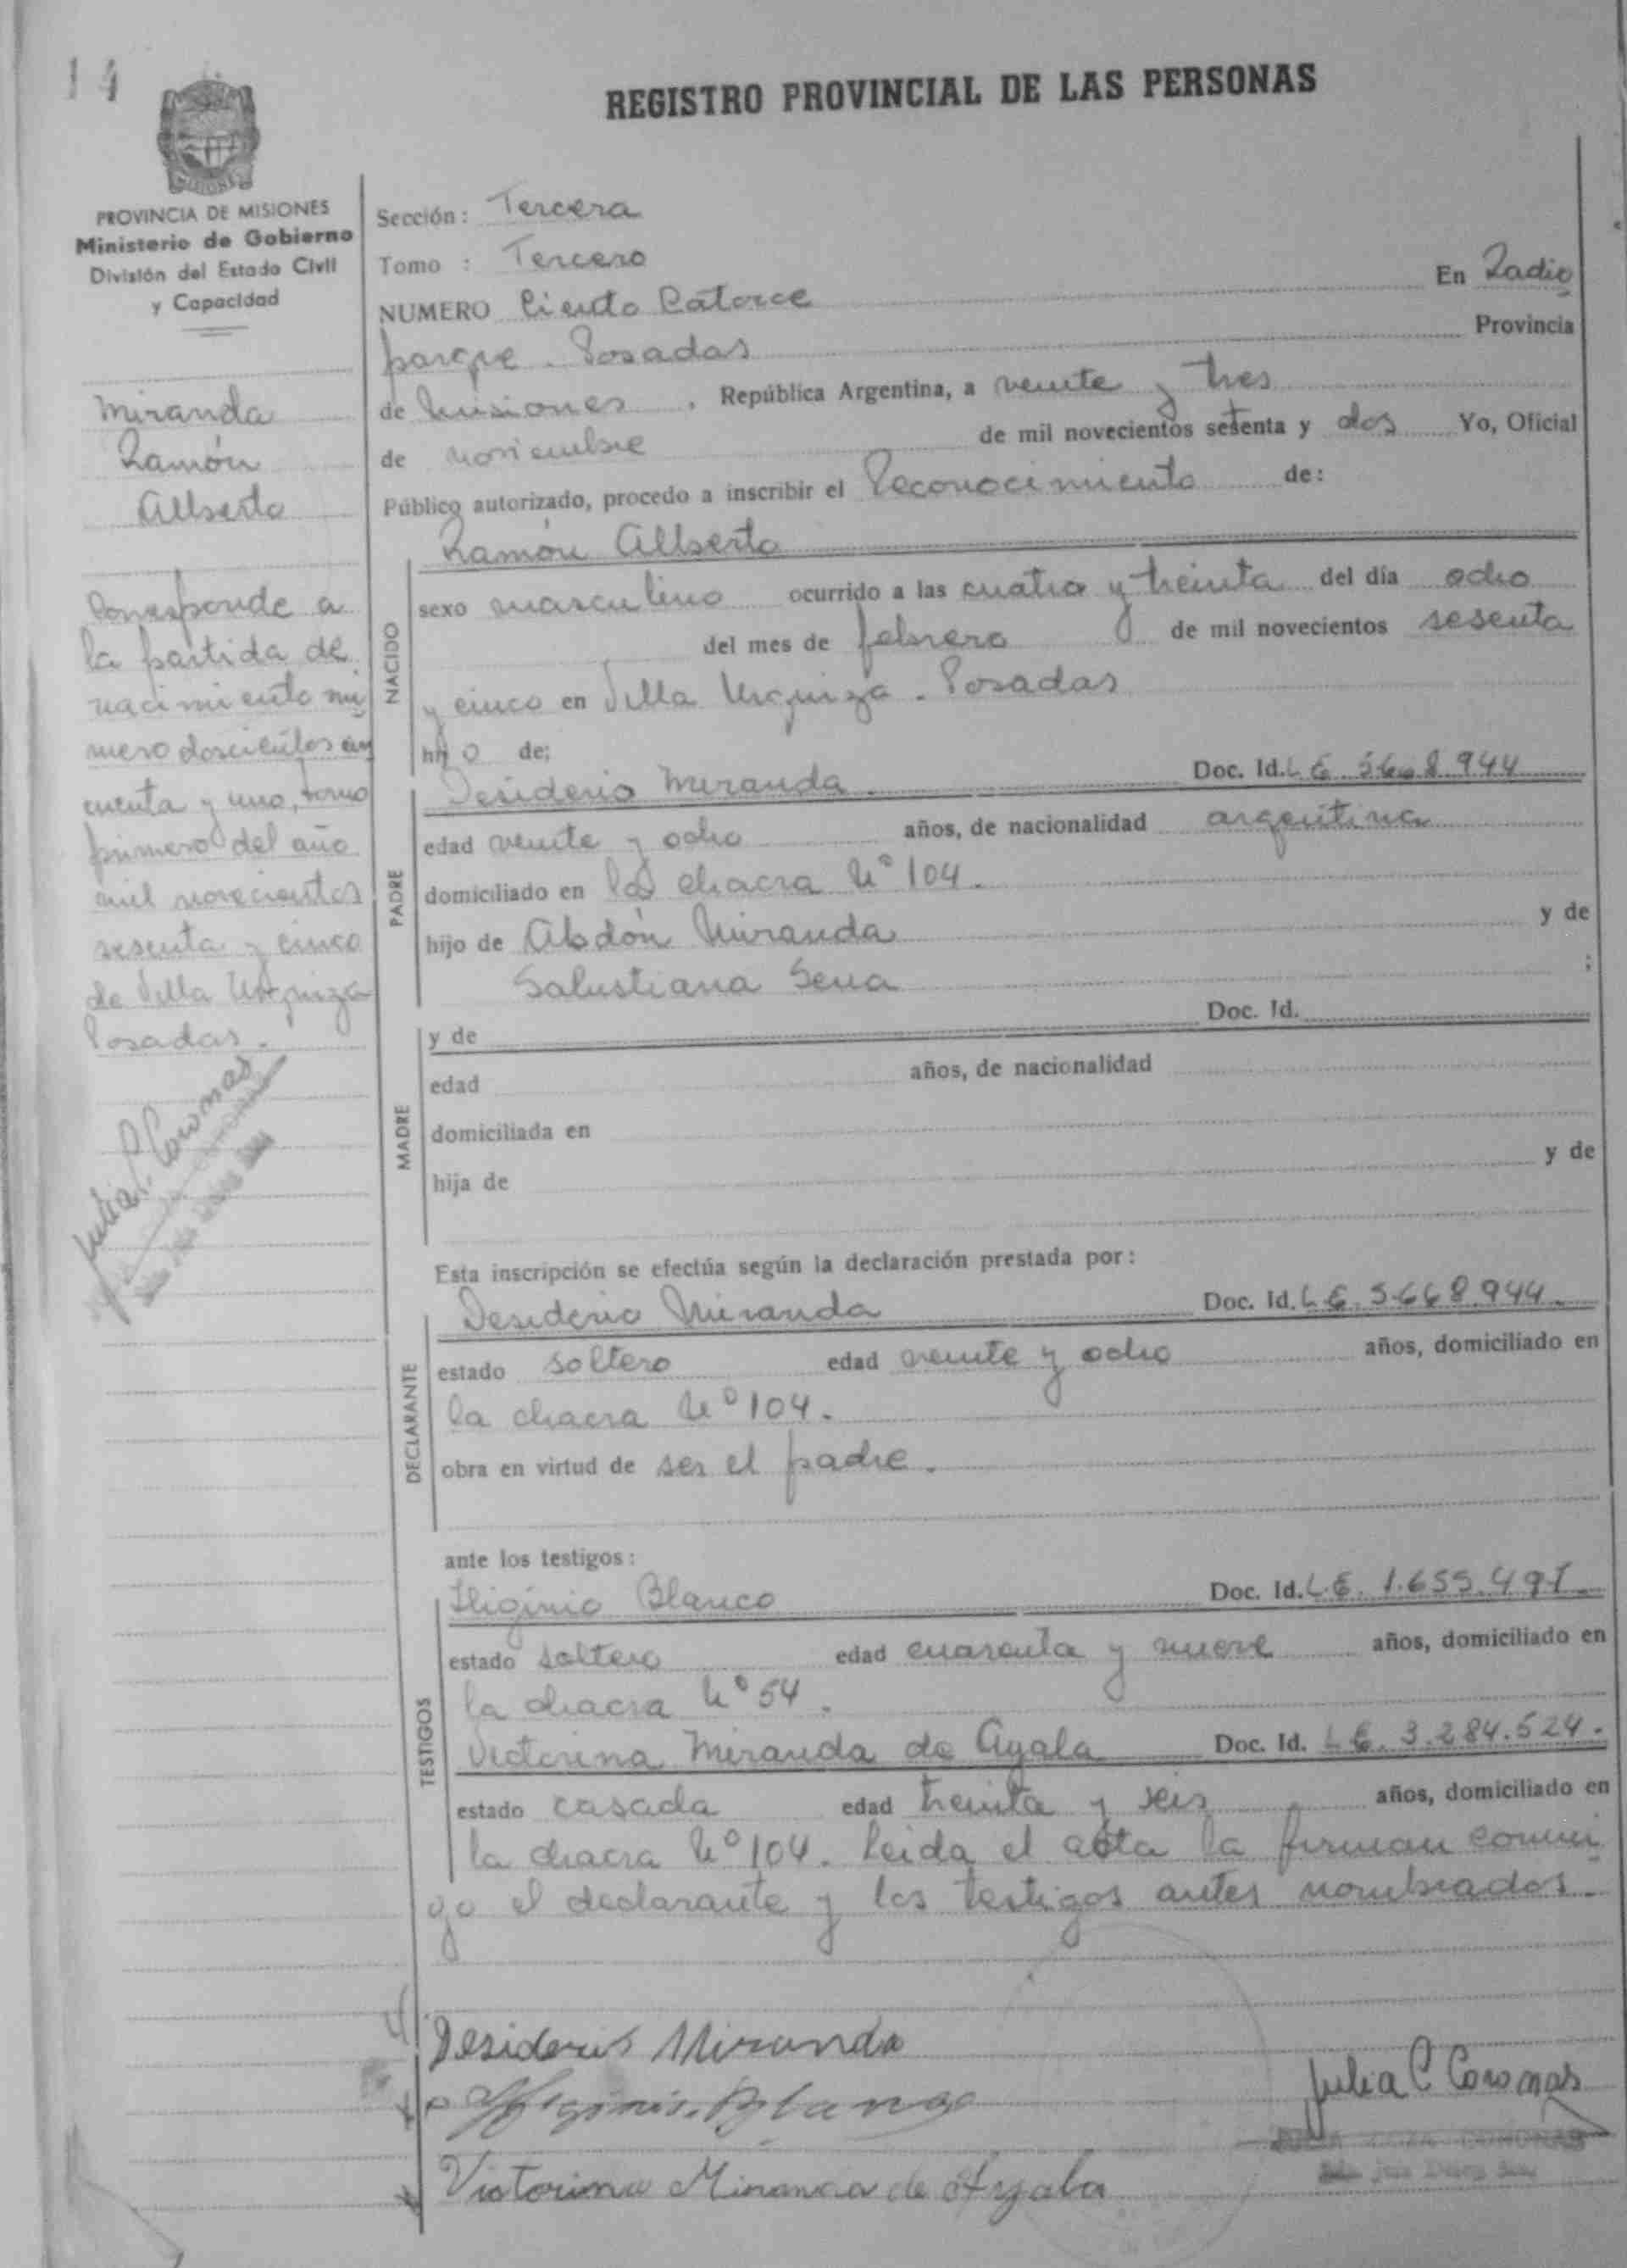 14
REGISTRO PROVINCIAL DE LAS PERSONAS
MISIONES
PROVINCIA DE MISIONES
Ministerio de Gobierno
División del Estado Civil
y Capacidad
Miranda
Ramón
Alberto
Corresponde a
la partida de
nacimiento nú
mero doscientos cin
cuenta y uno, tomo
primero del año
mil novecientos
sesenta y cinco
de Villa Urquiza
Posadas.
Julia C. Coronas
Sección: Tercera
Tomo : Tercero
NUMERO Ciento Catorce En Radio
parque. Posadas Provincia
de Misiones, República Argentina, a veinte y tres
de noviembre de mil novecientos setenta y dos Yo, Oficial
Público autorizado, procedo a inscribir el Reconocimiento de:
NACIDO
Ramón Alberto
sexo masculino ocurrido a las cuatro y treinta del día ocho
del mes de febrero de mil novecientos sesenta
y cinco en Villa Urquiza. Posadas
hijo de:
PADRE
Desiderio Miranda Doc. Id. L E 5668944
edad veinte y ocho años, de nacionalidad argentina
domiciliado en la chacra Nº 104.
hijo de Abdón Miranda y de
Salustiana Sena ;
MADRE
y de Doc. Id.
edad años, de nacionalidad
domiciliada en
hija de y de
Esta inscripción se efectúa según la declaración prestada por:
DECLARANTE
Desiderio Miranda Doc. Id. L.E. 5.668.944.
estado soltero edad veinte y ocho años, domiciliado en
la chacra Nº 104.
obra en virtud de ser el padre.
ante los testigos:
TESTIGOS
Higinio Blanco Doc. Id. L.E. 1.655.497
estado soltero edad cuarenta y nueve años, domiciliado en
la chacra Nº 54.
Victorina Miranda de Ayala Doc. Id. L.E. 3.284.524.
estado casada edad treinta y seis años, domiciliado en
la chacra Nº 104. Leida el acta la firman conmi
go el declarante y los testigos antes nombrados.
Desiderio Miranda
Higinio Blanco
Victorina Miranda de Ayala
Julia C Coronas